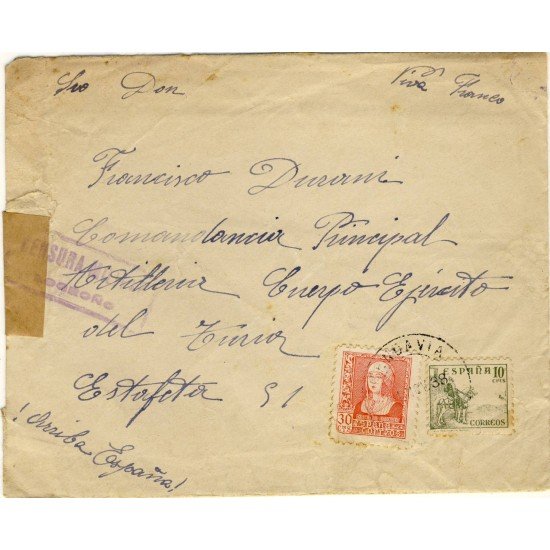 Sro Don
Viva Franco
Francisco Durani
Comandancia Principal
Artilleria Cuerpo Ejército
del Turia
Estafeta 51
¡Arriba España!
CENSURA
LOGROÑO
30
CTS
ESPAÑA
CORREOS
ESPAÑA 10
CTMS
CORREOS
38